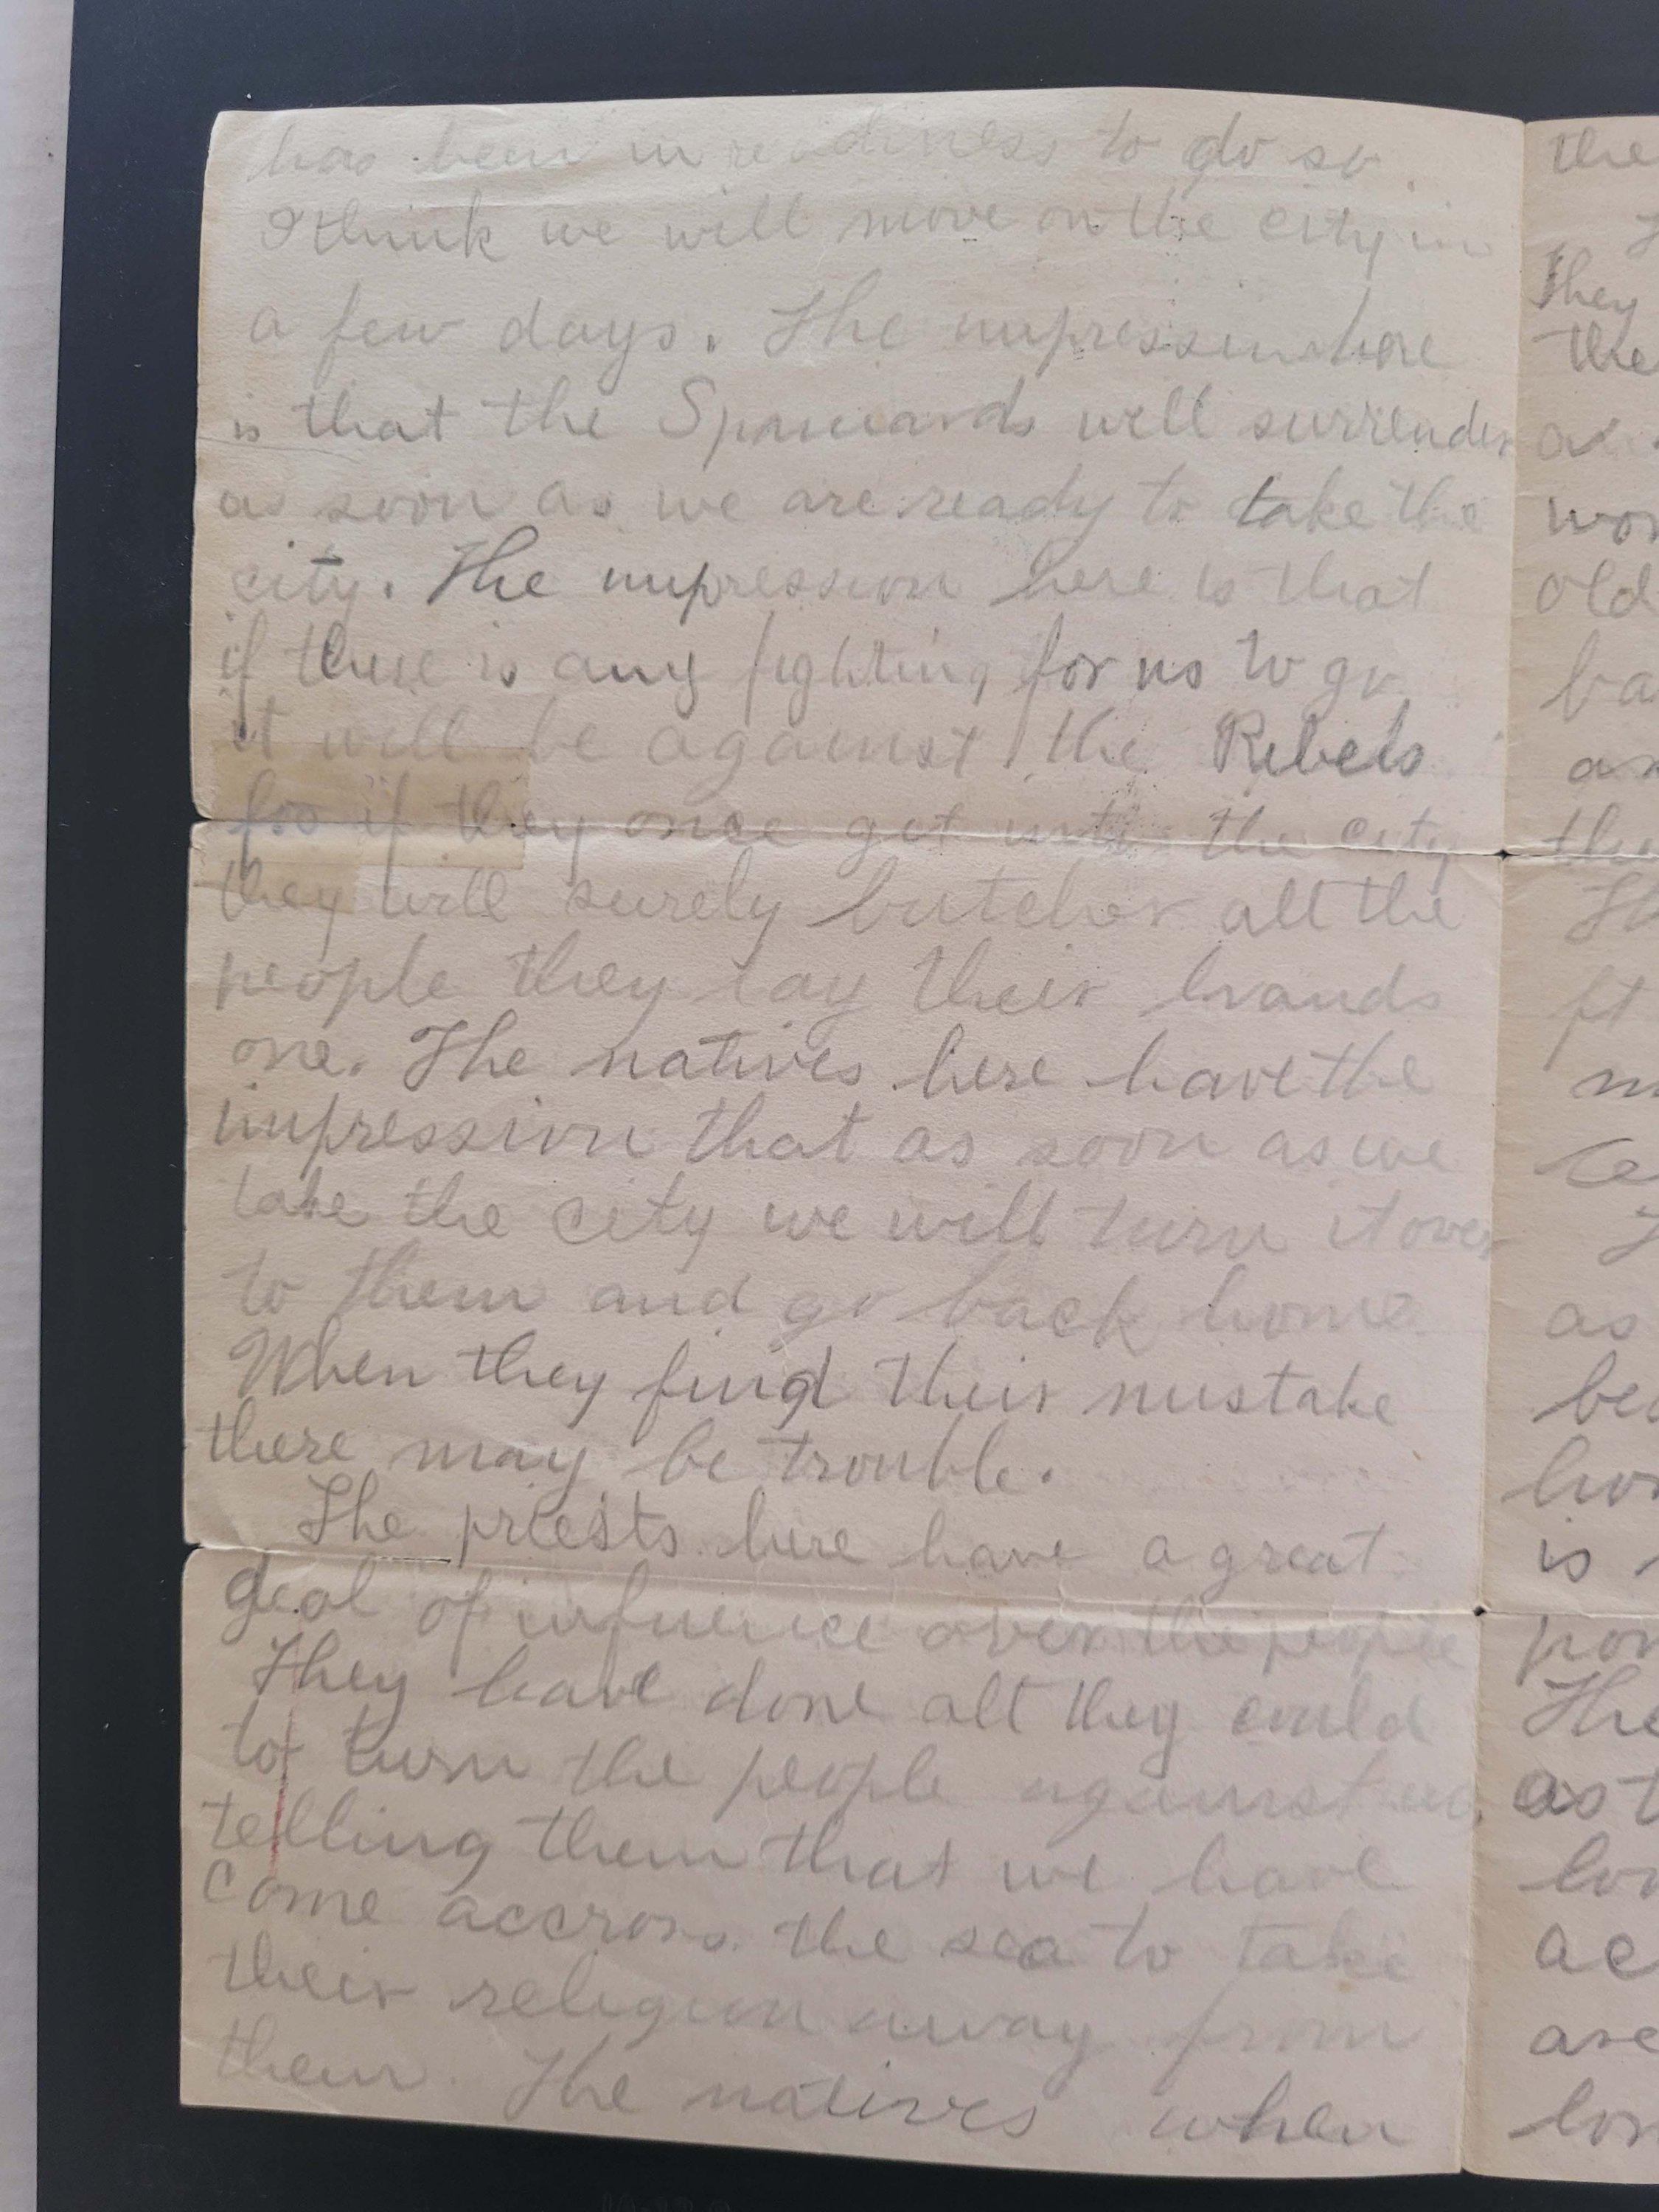 has been in readiness to do so.
I think we will move on the city in
a few days. The impression here
is that the Spaniards will surrender
as soon as we are ready to take the
city. The impression here is that
if there is any fighting for us to go
it will be against the Rebels
for if they once get into the city
they will surely butcher all the
people they lay their hands
one. The natives here have the
impression that as soon as we
take the city we will turn it over
to them and go back home
When they find their mistake
there may be trouble.
The priests here have a great
deal of influence over the people
They have done all they could
to turn the people against us,
telling them that we have
come accross the sea to take
their religion away from
them. The natives when
the
they
the
old
is
The
as t